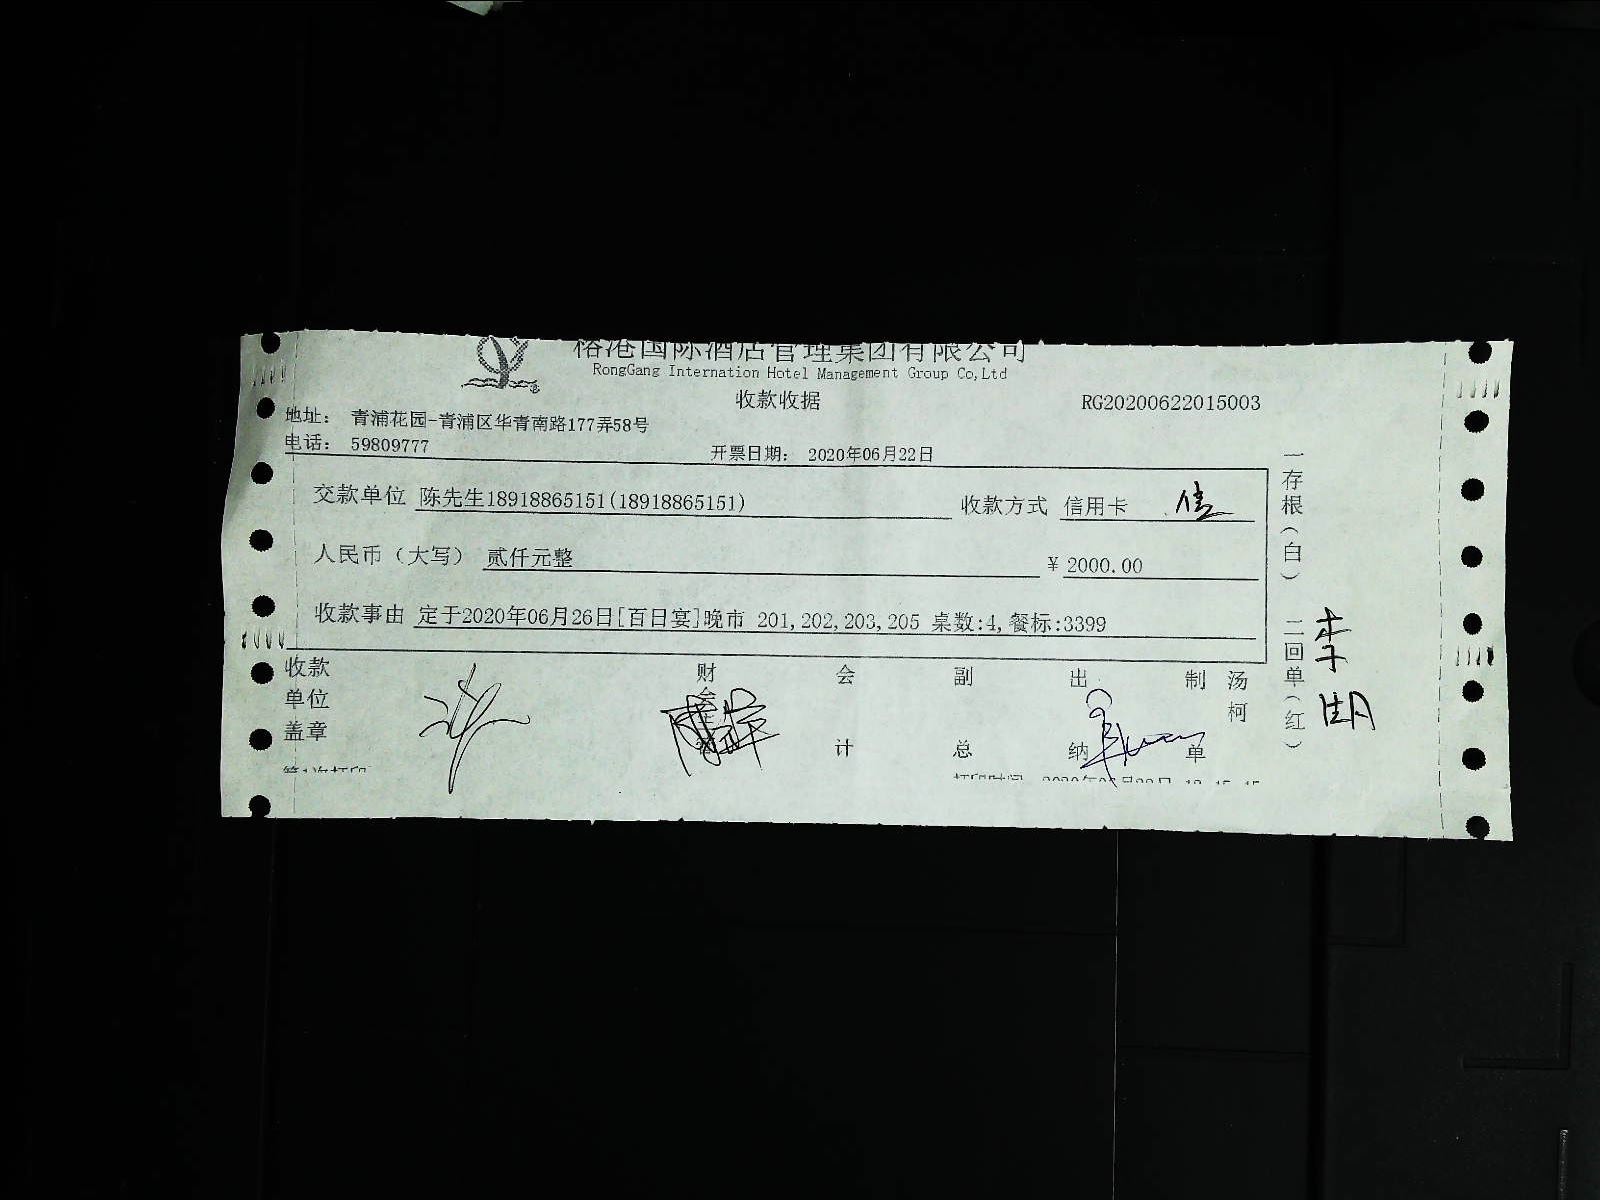 榕港国际酒店管理集团有限公司
RongGang Internation Hotel Management Group Co,Ltd
收款收据
RG20200622015003
地址： 青浦花园-青浦区华青南路177弄58号
电话： 59809777
开票日期： 2020年06月22日
交款单位 陈先生18918865151(18918865151)
收款方式 信用卡
人民币（大写） 贰仟元整
¥ 2000.00
收款事由 定于2020年06月26日[百日宴]晚市 201,202,203,205 桌数:4,餐标:3399
收款单位盖章
会计
副总
出纳
制单
汤柯
一存根（白）
二回单（红）